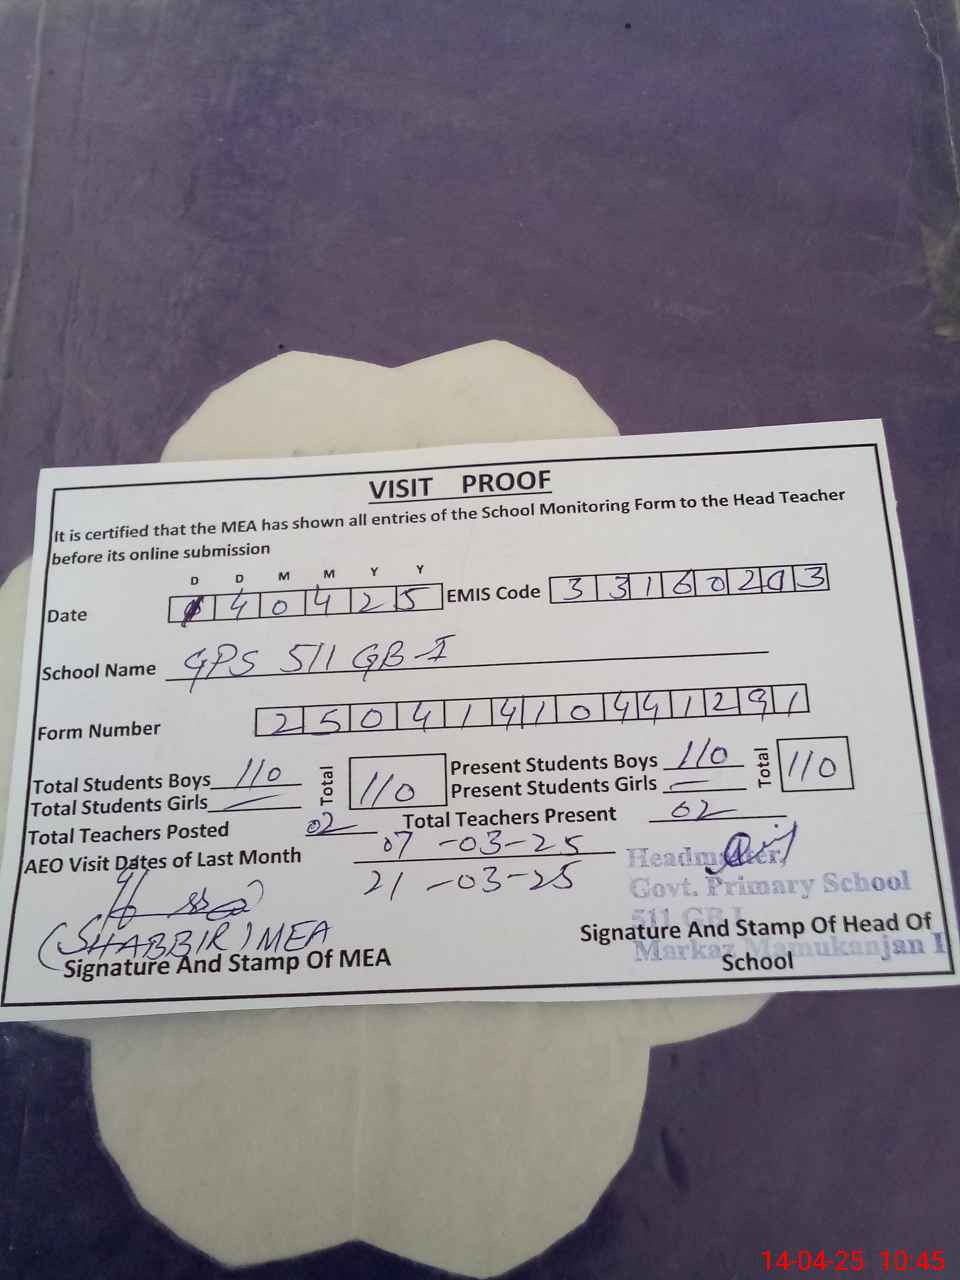 VISIT PROOF
It is certified that the MEA has shown all entries of the School Monitoring Form to the Head Teacher
before its online submission
D D M M Y Y
Date 140425 EMIS Code 33160203
School Name GPS 511 GB-I
Form Number 25041410441291
Total Students Boys 110 Total 110 Present Students Boys 110 Total 110
Total Students Girls — Present Students Girls —
Total Teachers Posted 02 Total Teachers Present 02
AEO Visit Dates of Last Month 07-03-25
21-03-25
Headmaster
Govt. Primary School
511 GB I
Markaz Mamukanjan I
(SHABBIR) MEA
Signature And Stamp Of MEA
Signature And Stamp Of Head Of
School
14-04-25 10:45